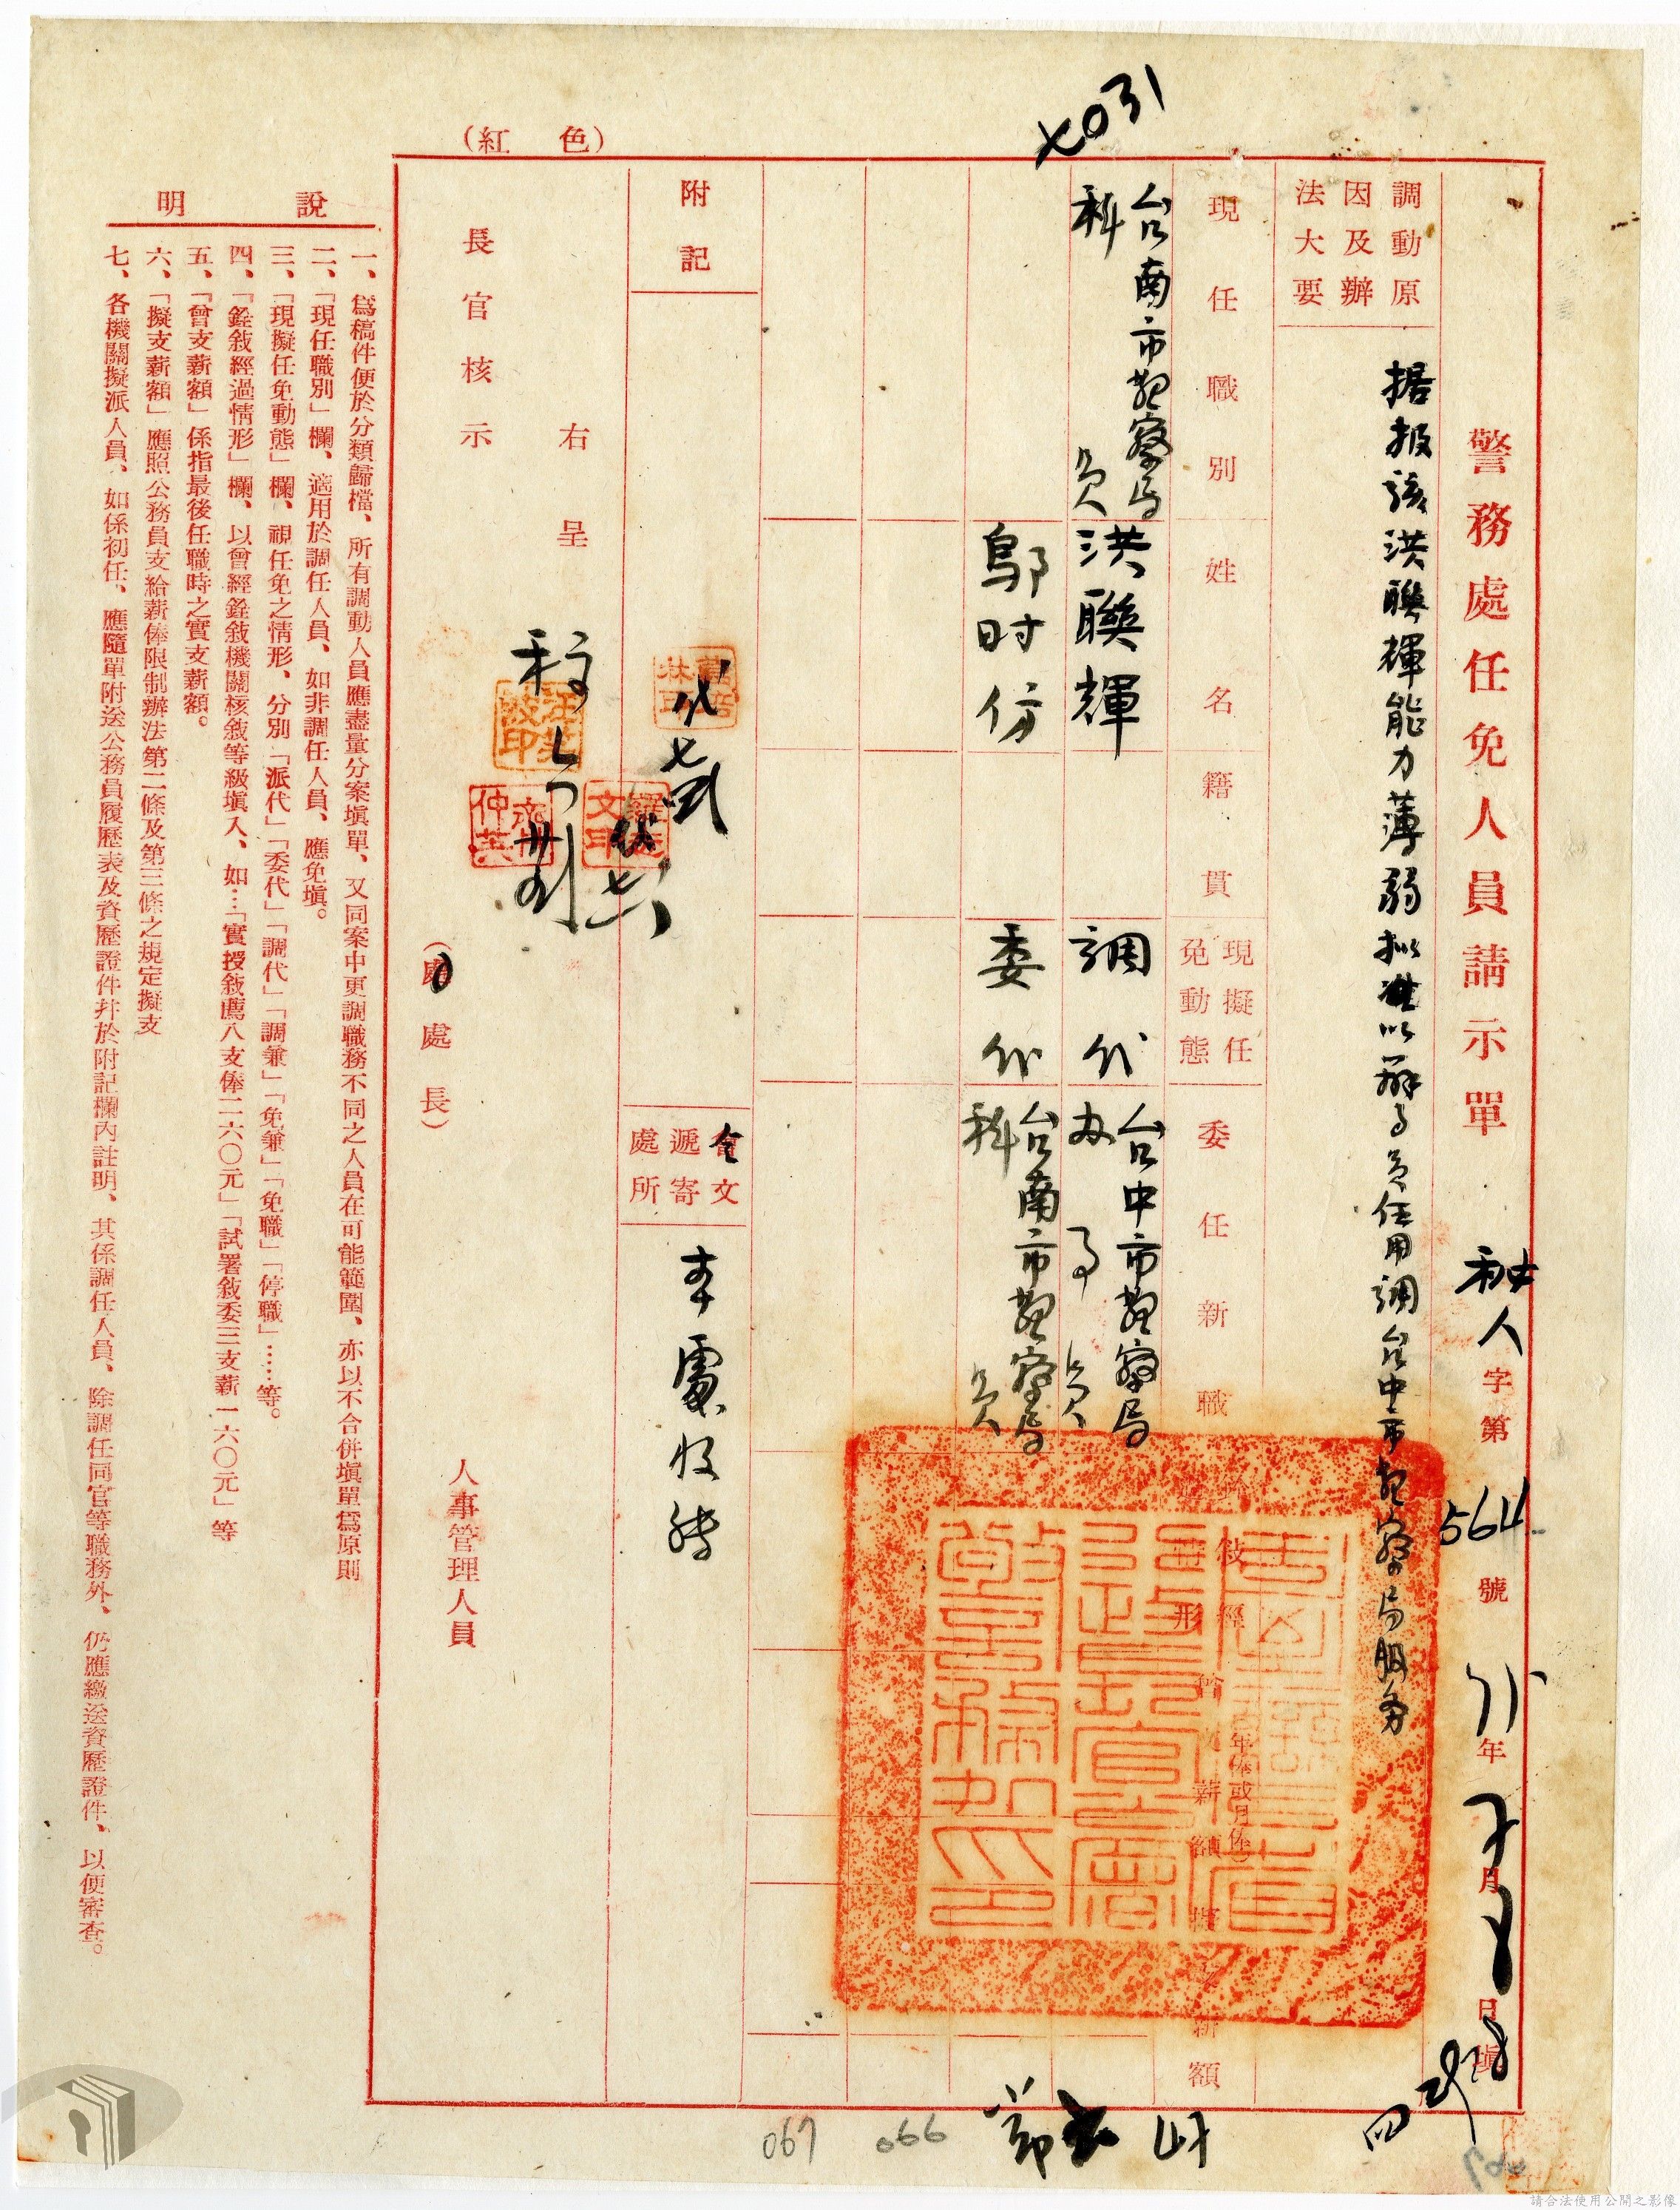 警務處任免人員請示單
秘人字第564號
年
月
日填
調動原
因及辦
法大要
据报該洪聯輝能力薄弱拟准以辦事員任用調台中市警察局服务
現任職別
姓名
籍貫
現擬任
免動態
委任新職
敍經
形
年俸或月俸
薪額
薪額
台南市警察局
科員
洪聯輝
調代
台中市警察局
办事員
鄔时仿
委代
台南市警察局
科員
附記
令文
遞寄
處所
本處收轉
右呈
長官核示
(處處長)
人事管理人員
(紅色)
說明
一、爲稿件便於分類歸檔、所有調動人員應盡量分案塡單、又同案中更調職務不同之人員在可能範圍、亦以不合併塡單爲原則
二、「現任職別」欄、適用於調任人員、如非調任人員、應免塡。
三、「現擬任免動態」欄、視任免之情形、分別「派代」「委代」「調代」「調兼」「免兼」「免職」「停職」……等。
四、「銓敍經過情形」欄、以曾經銓敍機關核敍等級塡入、如…「實授敍薦八支俸二六〇元」「試署敍委三支薪一六〇元」等
五、「曾支薪額」係指最後任職時之實支薪額。
六、「擬支薪額」應照公務員支給薪俸限制辦法第二條及第三條之規定擬支
七、各機關擬派人員、如係初任、應隨單附送公務員履歷表及資歷證件幷於附記欄內註明、其係調任人員、除調任同官等職務外、仍應繳送資歷證件、以便審查。
066
067
請合法使用公開之影像